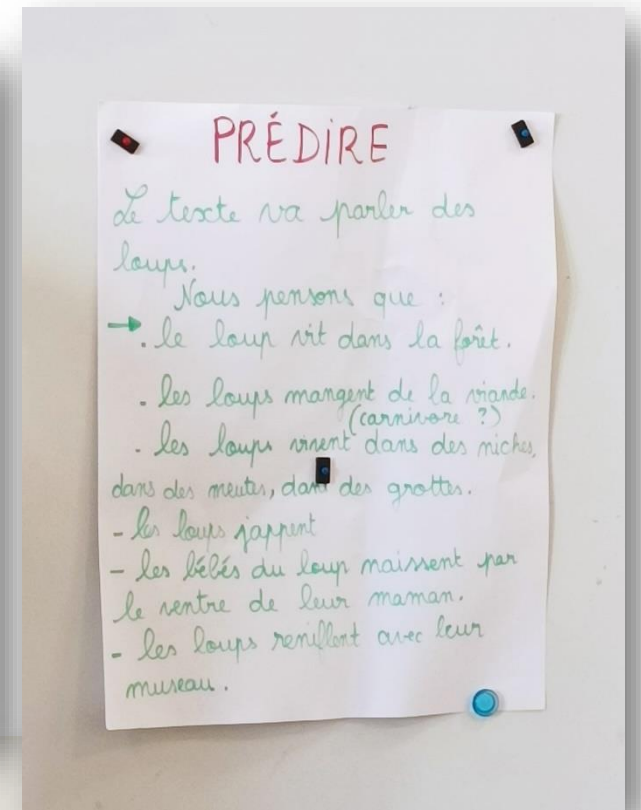 PRÉDIRE
Le texte va parler des
loups.
Nous pensons que :
→ . le loup vit dans la forêt.
- les loups mangent de la viande.
(carnivore ?)
- les loups vivent dans des niches,
dans des meutes, dans des grottes.
- les loups jappent
- les bébés du loup naissent par
le ventre de leur maman.
- les loups reniflent avec leur
museau.